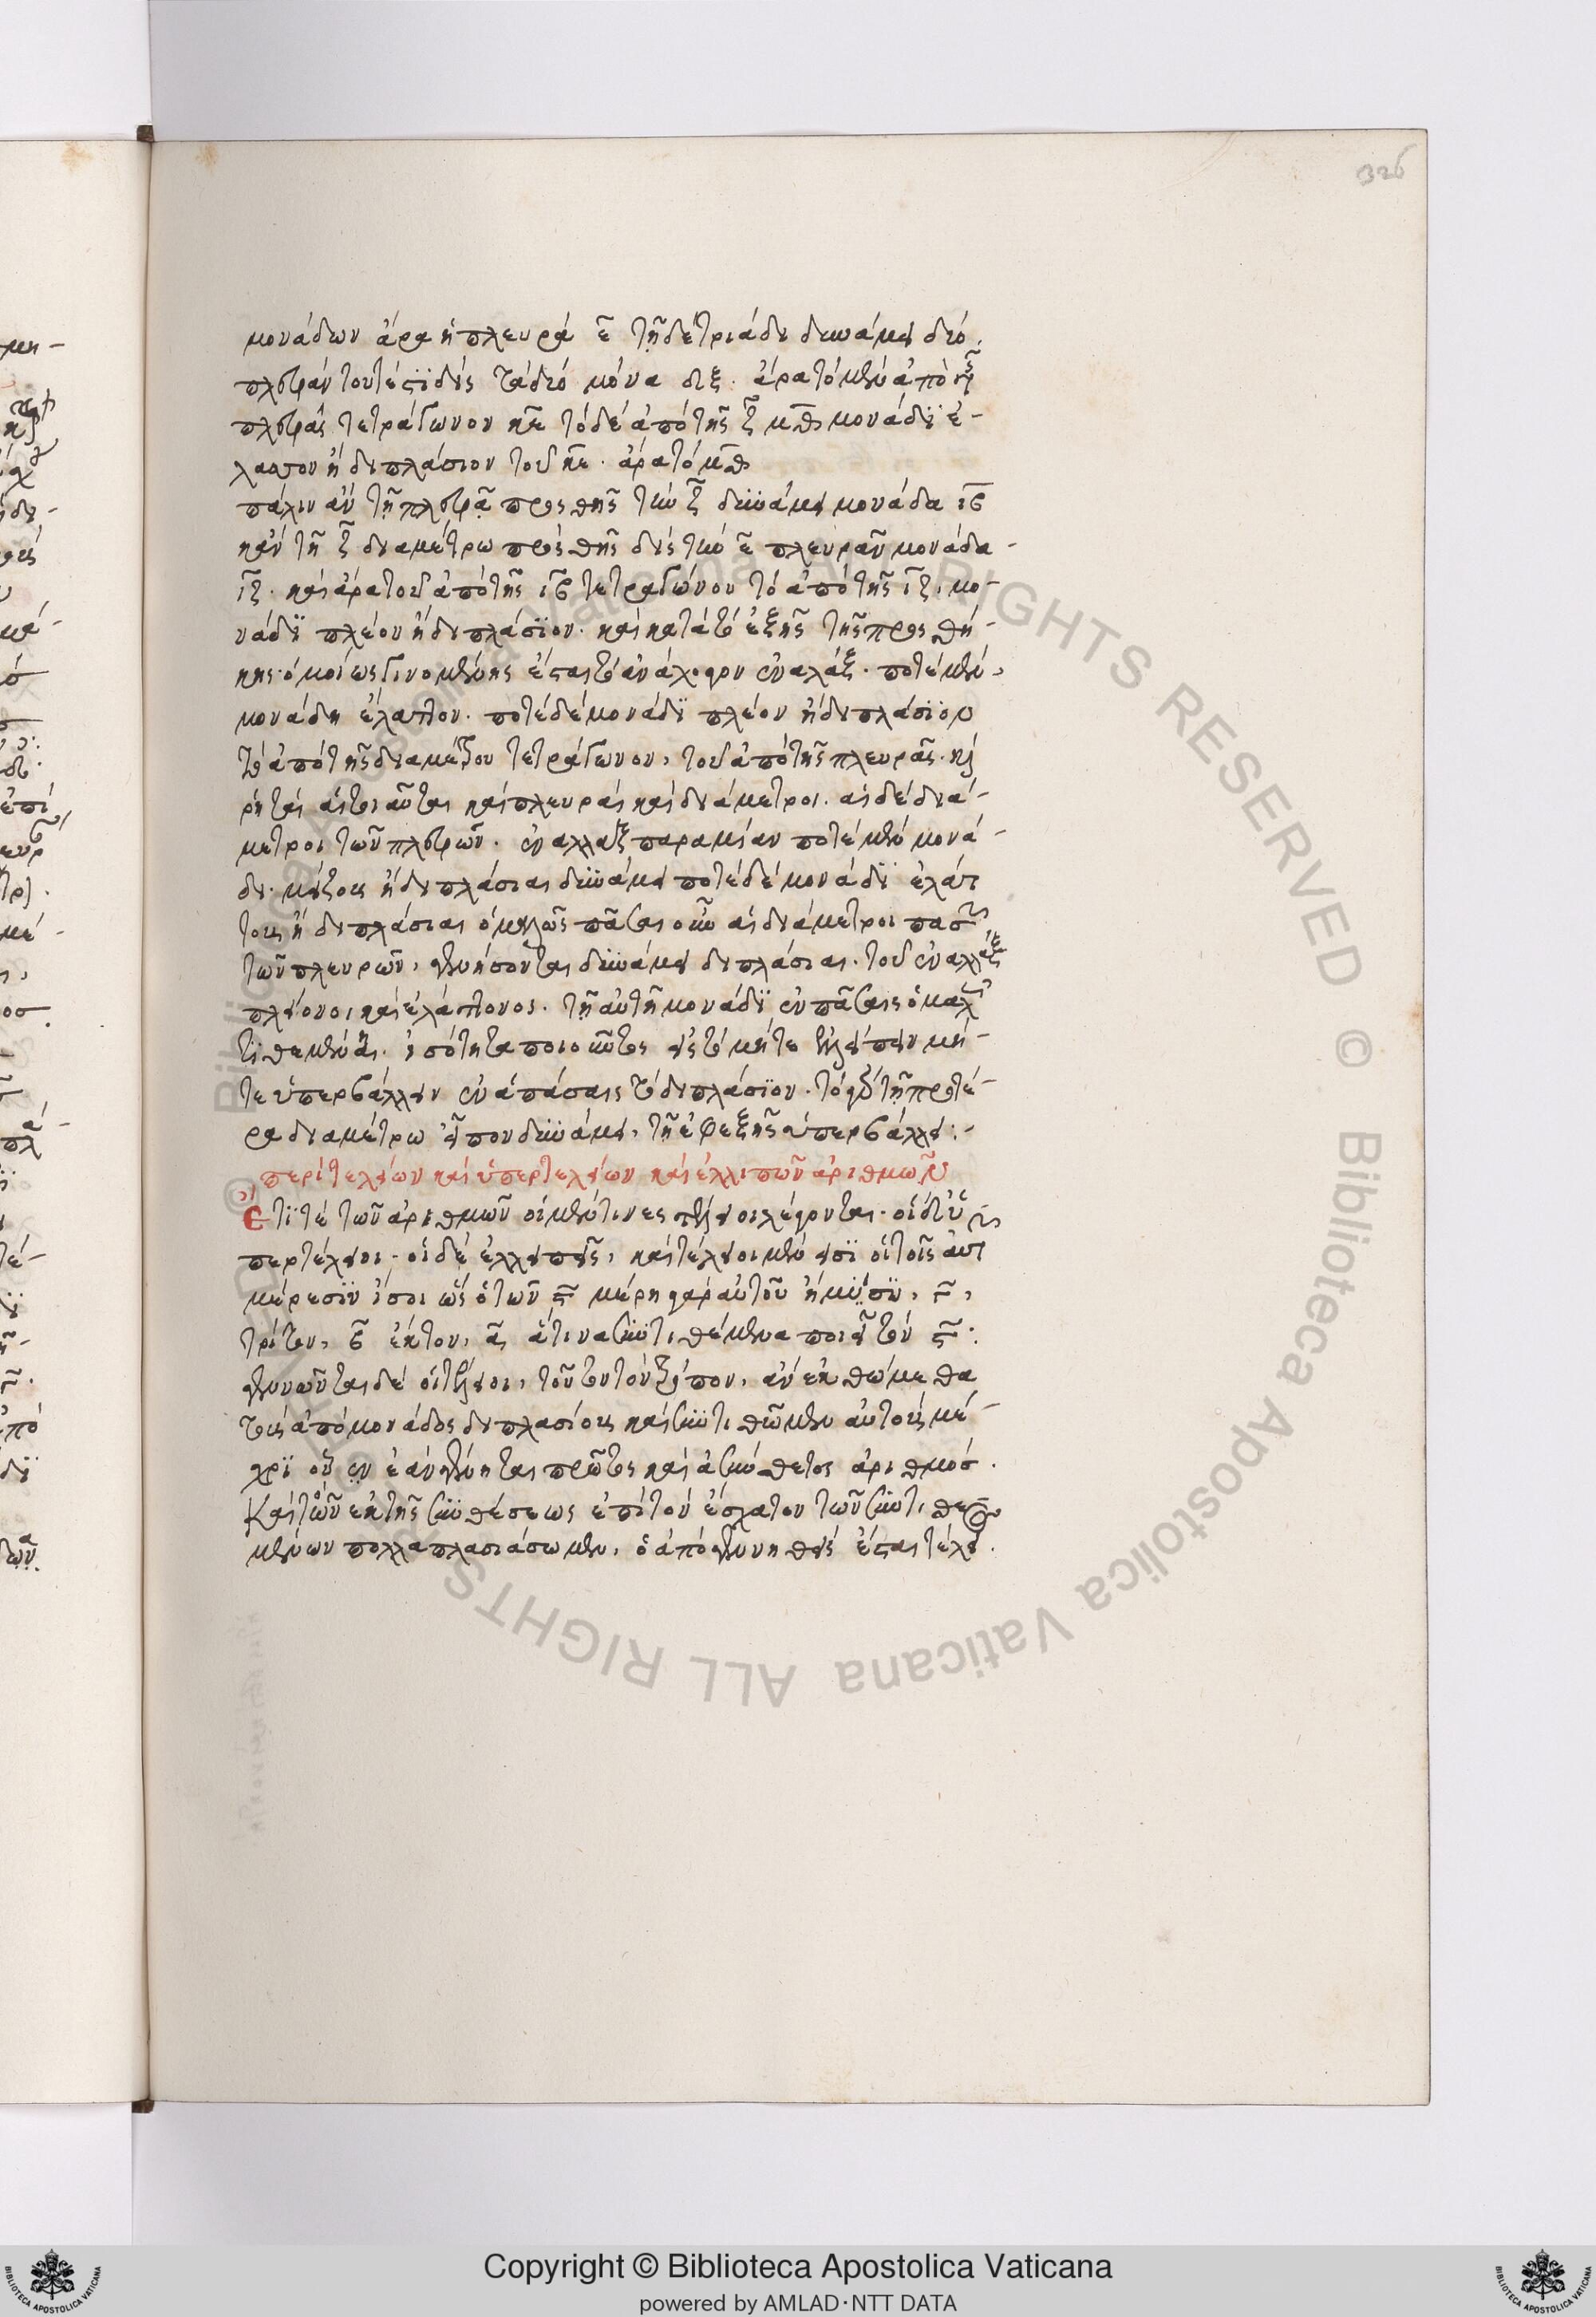 326
μονάδων ἄρα ἡ πλευρά ε̄ τῇ δὲ τριάδι δυνάμει δύο
πλευρὰν τουτέστι δὶς τὰ δύο μόνα δεξ. ἄρα τὸ μὲν ἀπὸ
πλευρᾶς τετράγωνον κ̄ε τὸ δὲ ἀπὸ τῆς ζ̄ μ̄θ μονάδι ἔ-
λαττον ἢ διπλάσιον τοῦ κ̄ε. ἄρα τὸ μ̄θ
πάλιν ἂν τῇ πλευρᾷ προσθῇς τὴν ζ̄ δυνάμει μονάδα ι̅β̅
κἂν τῇ ζ̄ διαμέτρω προσθῇς δὶς τὴν ε̄ πλευρὰν μονάδα
ι̅ζ̅. καὶ ἄρα τοῦ ἀπὸ τῆς ι̅β̅ τετραγώνου τὸ ἀπὸ τῆς ι̅ζ̅, μο-
νάδι πλέον ἢ διπλάσιον. καὶ κατὰ τὸ ἑξῆς τῆς προσθή-
κης ὁμοίως γινομένης ἔσται τὸ ἀνάλογον ἐναλάξ. ποτὲ μὲν,
μονάδη ἔλαττον. ποτὲ δὲ μονάδι πλέον ἢ διπλάσιον
τὸ ἀπὸ τῆς διαμέτρου τετράγωνον, τοῦ ἀπὸ τῆς πλευρᾶς. καὶ
ῥηταὶ αἱ τοιαῦται καὶ πλευραὶ καὶ διάμετροι. αἱ δὲ διά-
μετροι τῶν πλευρῶν. ἐναλλὰξ παρὰ μίαν ποτὲ μὲν μονά-
δι. μείζους ἢ διπλάσιαι δυνάμει ποτὲ δὲ μονάδι ἐλάτ
τους ἢ διπλάσιαι ὁμαλῶς πᾶσαι οὖν αἱ διάμετροι πασῶν
τῶν πλευρῶν, γενήσονται δυνάμει διπλάσιαι. τοῦ ἐναλλὰξ
πλείονος καὶ ἐλάττονος. τῇ αὐτῇ μονάδι ἐν πάσαις ὁμαλῶς
τιθεμένῃ. ἰσότητα ποιοῦντος εἰς τὸ μήτε ἐλλείπειν μή-
τε ὑπερβάλλειν ἐν ἁπάσαις τὸ διπλάσιον. τὸ γὰρ τῇ προτέ-
ρα διαμέτρω λεῖπον δυνάμει, τῇ ἐφεξῆς ὑπερβάλλει:-
περὶ τελείων καὶ ὑπερτελείων καὶ ἐλλιπῶν ἀριθμῶν
Ἔτι τε τῶν ἀριθμῶν οἱ μέν τινες τέλειοι λέγονται. οἱ δ' ὑ
περτέλειοι. οἱ δὲ ἐλλειπεῖς, καὶ τέλειοι μέν εἰσιν οἱ τοῖς αὑτ
μέρεσιν ἴσοι ὡς ὁ τῶν ϛ̄ μέρη γὰρ αὐτοῦ ἥμισυ, γ̄,
τρίτον, β̄ ἕκτον, ᾱ ἅτινα συντιθέμενα ποιεῖ τὸν ϛ̄:
γεννῶνται δὲ οἱ τέλειοι, τοῦτον τὸν τρόπον, ἂν ἐκθώμεθα
τοὺς ἀπὸ μονάδος διπλασίους καὶ συντιθῶμεν αὐτοὺς μέ-
χρι οὗ ἂν ἐὰν γένηται πρῶτος καὶ ἀσύνθετος ἀριθμός.
Καὶ τὸν ἐκ τῆς συνθέσεως ἐπὶ τὸν ἔσχατον τῶν συντιθε
μένων πολλαπλασιάσωμεν, ὁ ἀπογεννηθεὶς ἔσται τέλει
Copyright © Biblioteca Apostolica Vaticana
powered by AMLAD·NTT DATA